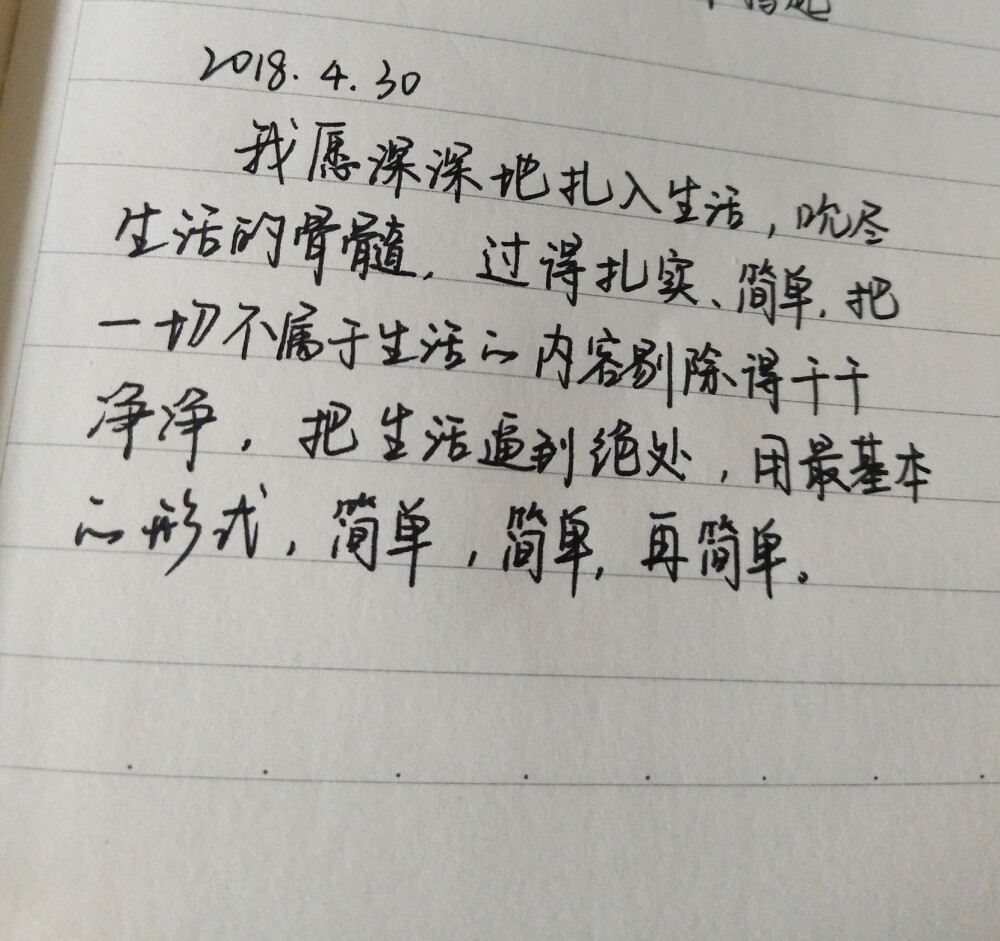 2018.4.30
我愿深深地扎入生活,吮尽
生活的骨髓,过得扎实、简单,把
一切不属于生活的内容剔除得干干
净净,把生活逼到绝处,用最基本
的形式,简单,简单,再简单。